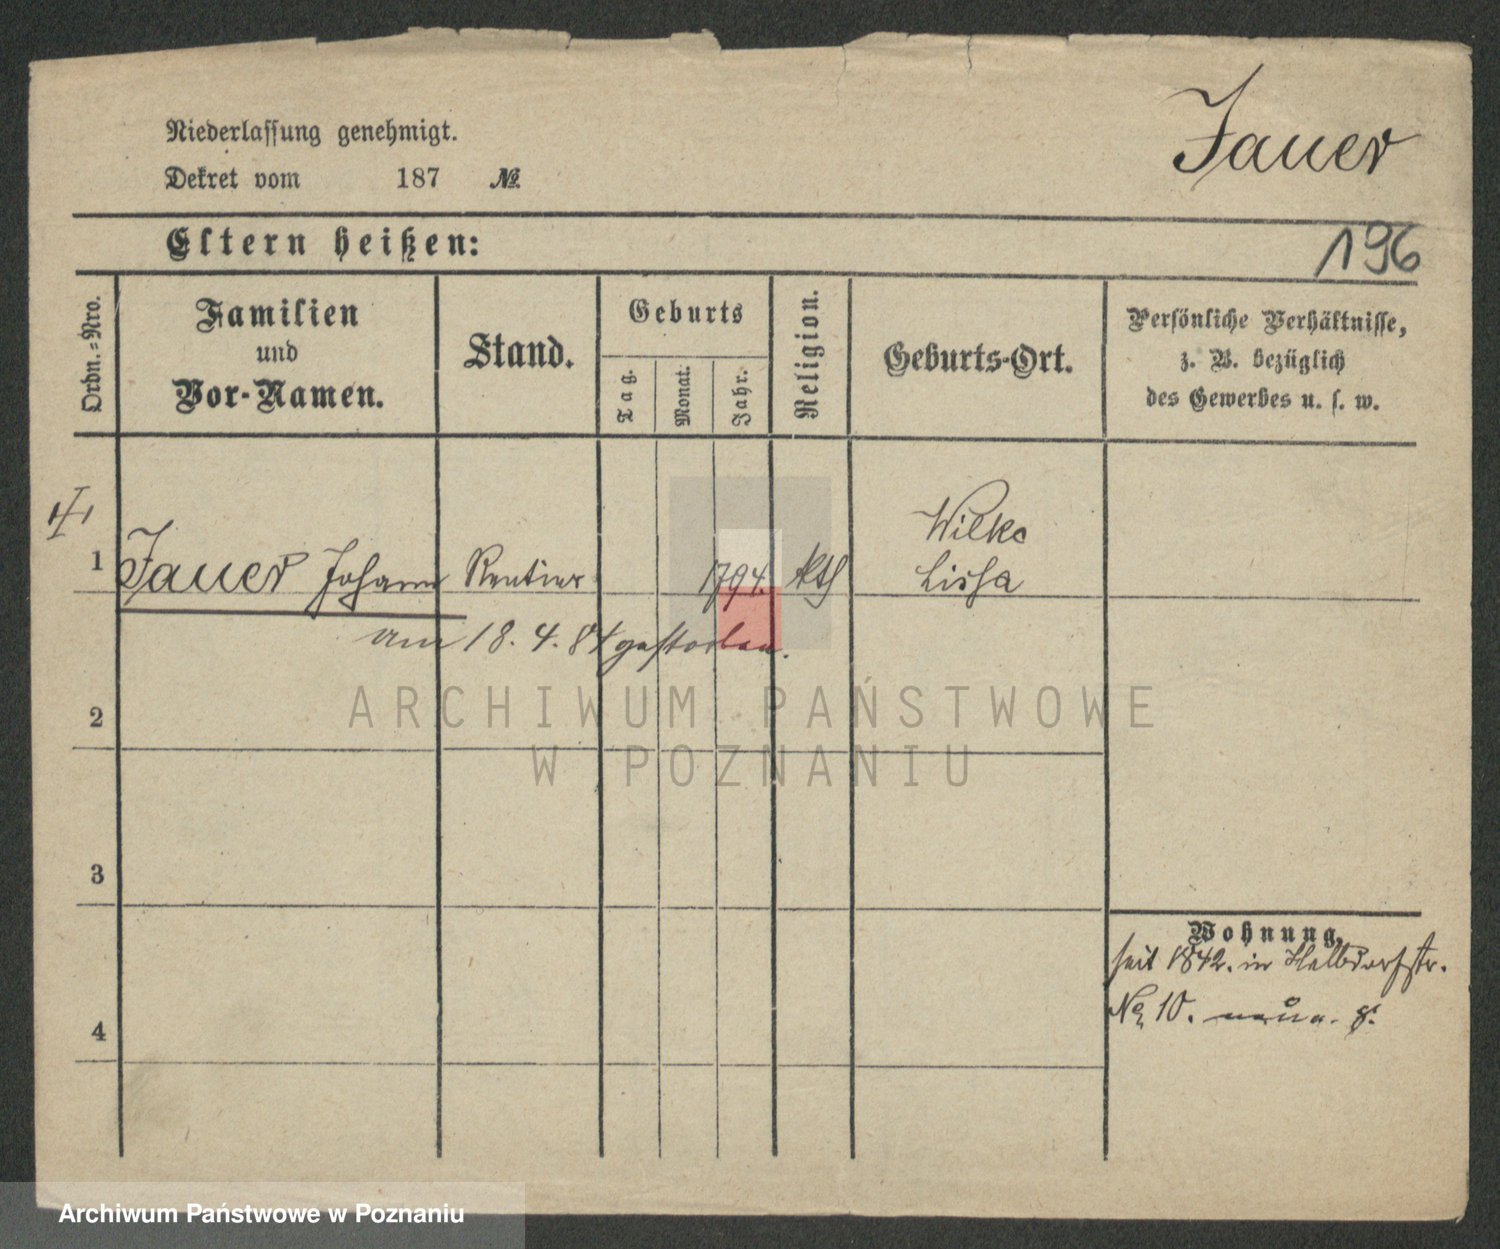 Jauer
Niederlassung genehmigt.
Dekret vom 187 №
Eltern heißen:
196
Ordn.-Nro.
Familien
und
Vor-Namen.
Stand.
Geburts
Tag.
Monat.
Jahr.
Religion.
Geburts-Ort.
Persönliche Verhältnisse,
z. B. bezüglich
des Gewerbes u. s. w.
1 Jauer Johann Rentier 1794. kth Wilke
Lissa
am 18. 4. 84 gestorben.
2
ARCHIWUM PAŃSTWOWE
W POZNANIU
3
Wohnung,
seit 1842. in Halbdorfstr.
№ 10.
4
Archiwum Państwowe w Poznaniu